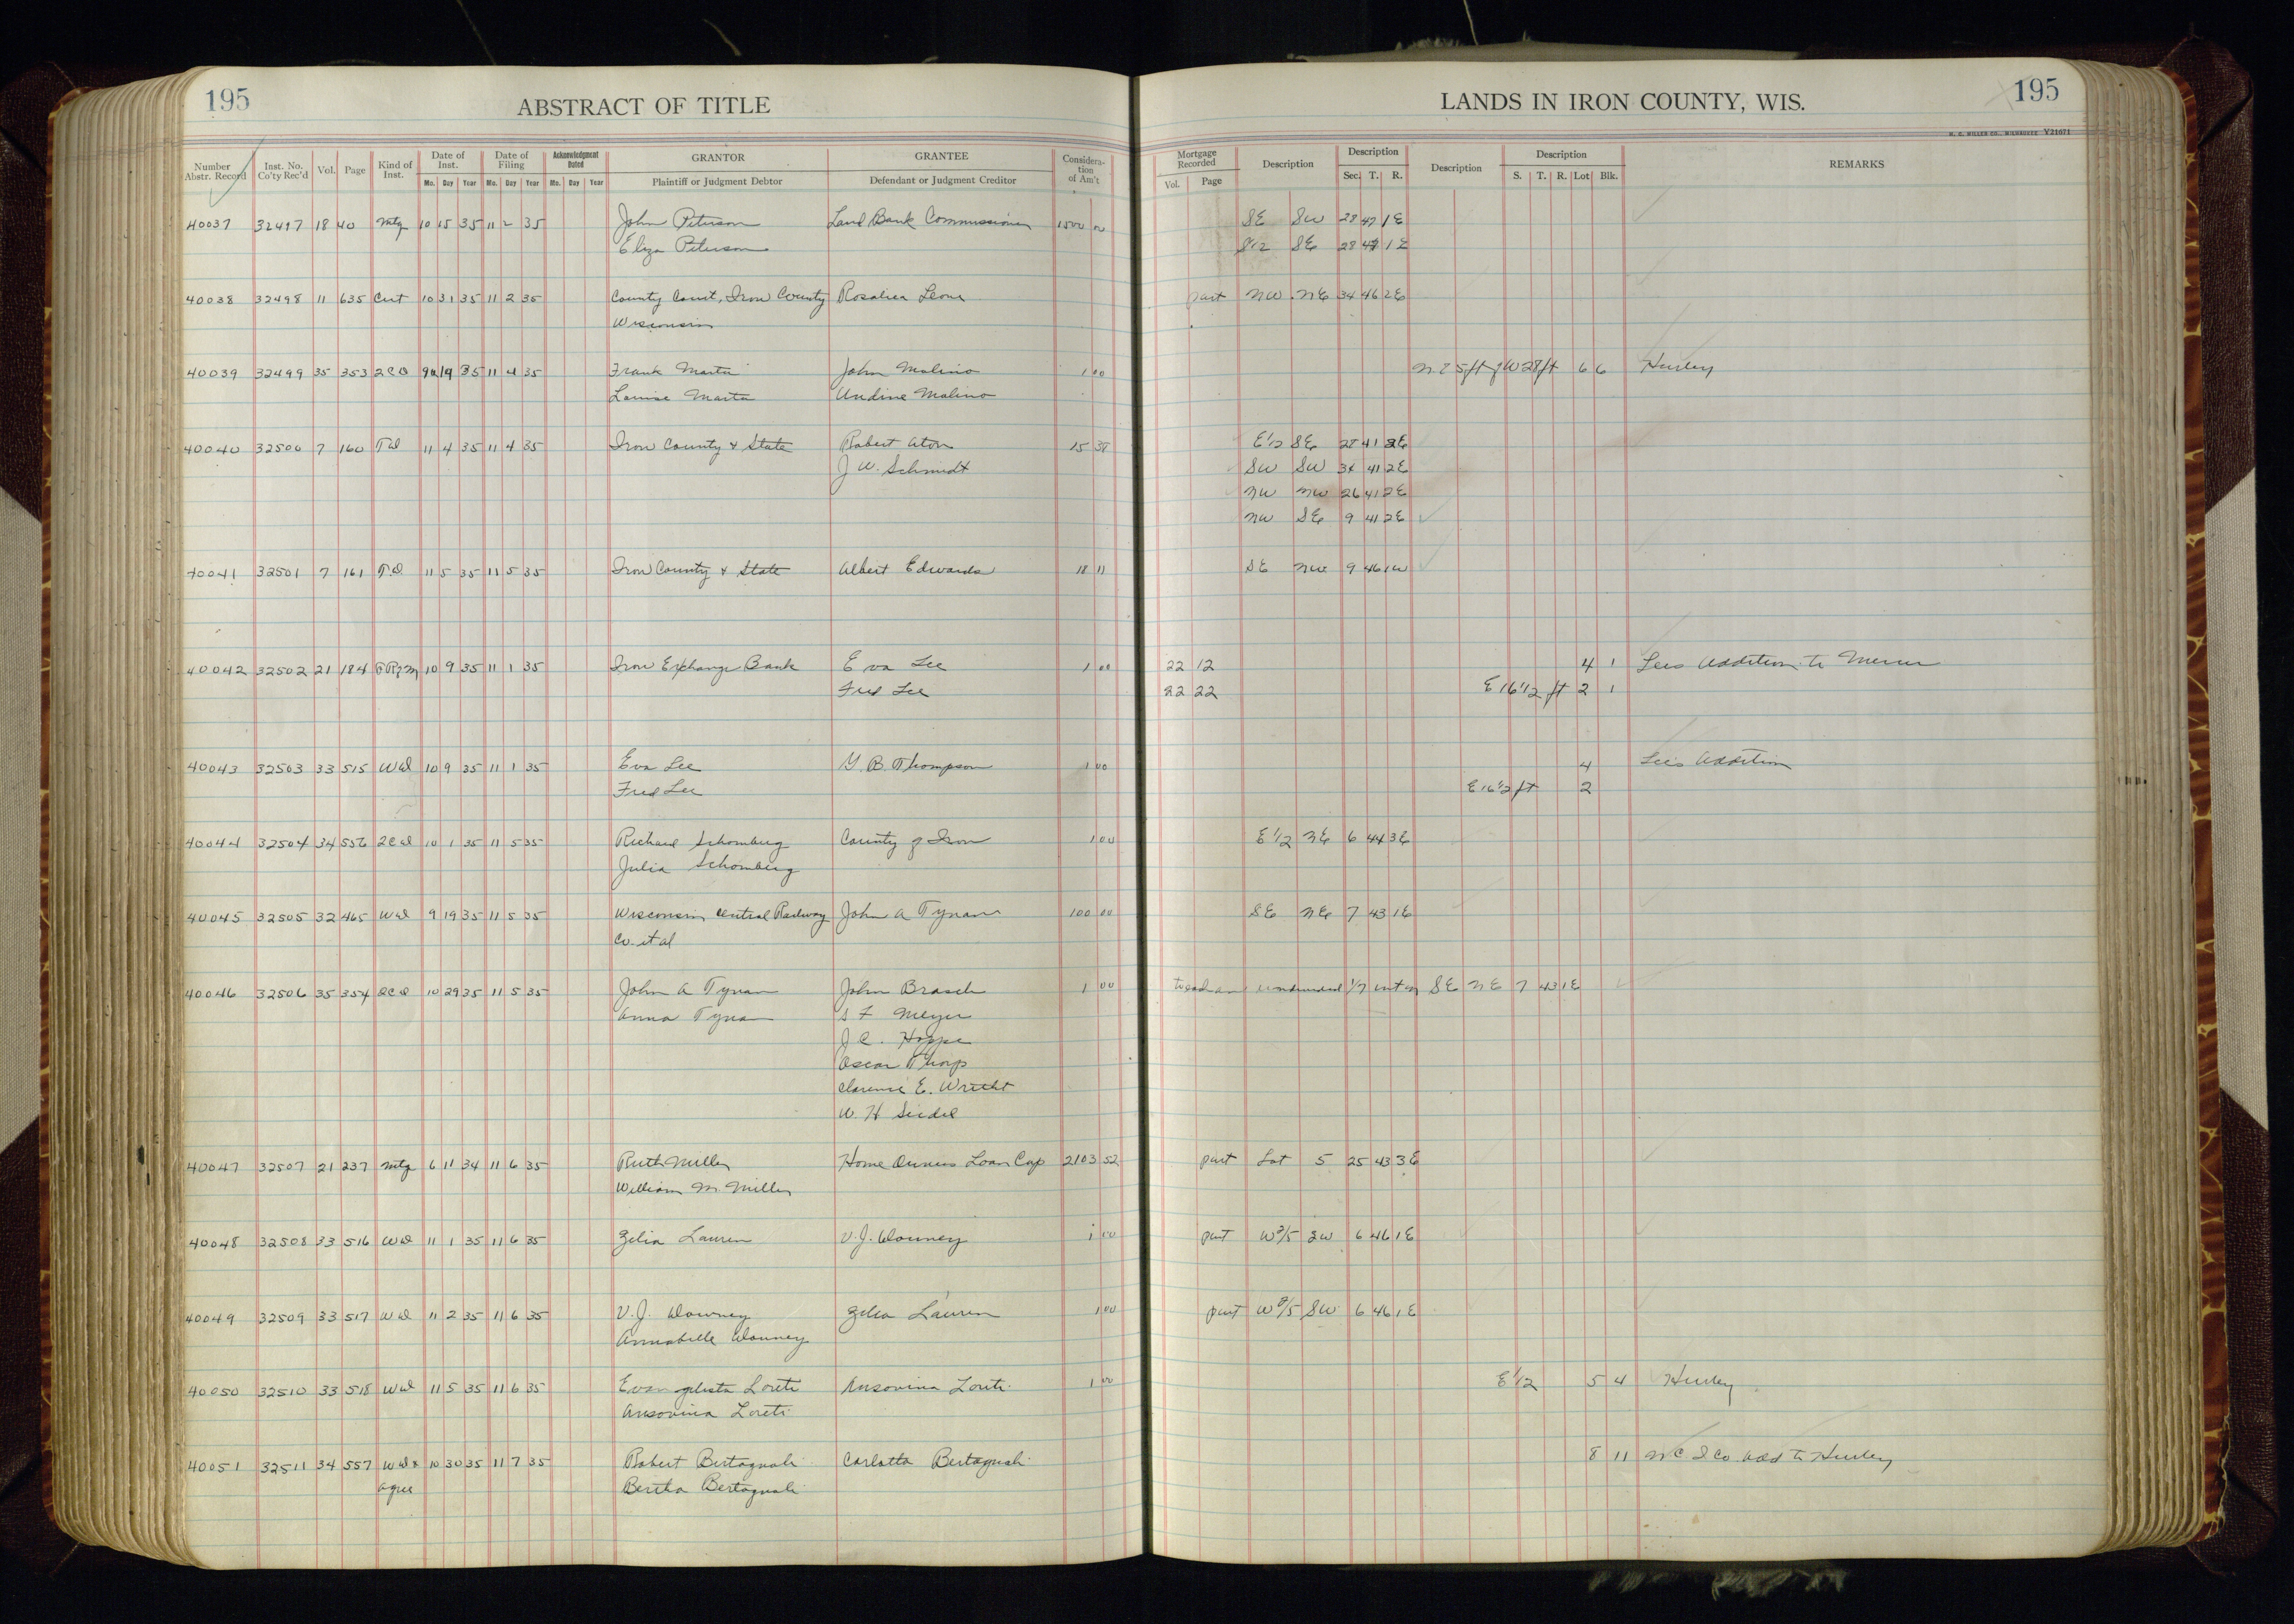 195
ABSTRACT OF TITLE
LANDS IN IRON COUNTY, WIS.
195
H. C. MILLER CO., MILWAUKEE Y21671
Number Abstr. Record Inst. No. Co'ty Rec'd Vol. Page Kind of Inst. Date of Inst. Mo. Day Year Date of Filing Mo. Day Year Acknowledgment Dated Mo. Day Year GRANTOR Plaintiff or Judgment Debtor GRANTEE Defendant or Judgment Creditor Considera-tion of Am't Mortgage Recorded Vol. Page Description Description Sec. T. R. Description Description S. T. R. Lot Blk. REMARKS
40037 32497 18 40 Mtg 10 15 35 11 2 35 John Peterson Land Bank Commissioner 1500 00 SE SW 28 47 1E
Eliza Peterson S1/2 SE 28 47 1E
40038 32498 11 635 Cert 10 31 35 11 2 35 County Court, Iron County Rosalia Leona part NW NE 34 46 2E
Wisconsin
40039 32499 35 353 2CD 19 35 11 4 35 Frank Marta John Molino 1 00 ft of W 28 ft 6 6 Hurley
Louise Marta Undine Molino
40040 32500 7 160 TD 11 4 35 11 4 35 Iron County & State Robert Aton 15 38 E1/2 SE 28 41 2E
J W. Schmidt SW SW 34 41 2E
NW NW 26 41 2E
NW SE 9 41 2E
40041 32501 7 161 T.D 11 5 35 11 5 35 Iron County & State Albert Edwards 18 11 SE NW 9 46 1W
40042 32502 21 184 10 9 35 11 1 35 Iron Exchange Bank Eva Lee 1 00 22 12 4 1 Lees Addition to Mercer
Fred Lee 22 22 E 16 1/2 ft 2 1
40043 32503 33 515 WD 10 9 35 11 1 35 Eva Lee G. B. Thompson 1 00 4 Lee's Addition
Fred Lee E 16 1/2 ft 2
40044 32504 34 556 2CD 10 1 35 11 5 35 Richard Schomberg County of Iron 1 00 E1/2 NE 6 44 3E
Julia Schomberg
40045 32505 32 465 WD 9 19 35 11 5 35 Wisconsin Central Railway John A Tynan 100 00 SE NE 7 43 1E
Co. et al
40046 32506 35 354 2CD 10 29 35 11 5 35 John A Tynan John Brasch 1 00 to each an undivided 1/7 int in SE NE 7 43 1E
Anna Tynan S F Meyer
J. C. Hoppe
Oscar Thorp
Clarence E. Wricht
W. H Seidel
40047 32507 21 237 Mtg 6 11 34 11 6 35 Ruth Miller Home Owners Loan Corp 2103 52 part Lot 5 25 43 3E
William M. Miller
40048 32508 33 516 WD 11 1 35 11 6 35 Zelia Lauren V. J. Downey 1 00 part W 2/5 SW 6 46 1E
40049 32509 33 517 WD 11 2 35 11 6 35 V. J. Downey Zelia Lauren 1 00 part W 2/5 SW 6 46 1E
Annabelle Downey
40050 32510 33 518 WD 11 5 35 11 6 35 Evangelista Loreti Ansovina Loreti 1 00 E1/2 5 4 Hurley
Ansovina Loreti
40051 32511 34 557 WD & 10 30 35 11 7 35 Robert Bertagnoli Carlotta Bertagnoli 8 11 Add to Hurley
Agree Bertha Bertagnoli